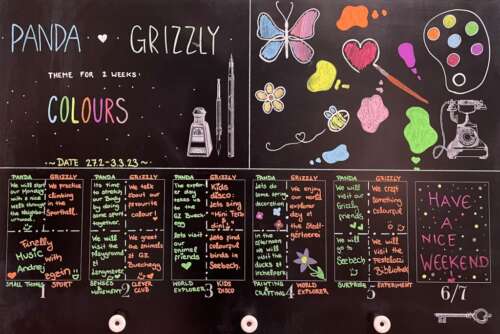 PANDA ♥ GRIZZLY
THEME FOR 2 WEEKS.
COLOURS
~ DATE 27.2-3.3.23 ~
PANDA
We will start
our Monday
with a nice
walk through
the
GRIZZLY
We practice
climbing
in the
Sporthall.
Music
with
Andrey
again
SMALL THINGS 1 SPORT
PANDA
Its time
to stretch
our Body
by doing
some sport
together.
We will
visit the
playground
at
GRIZZLY
We talk
about our
favourite
colour!
We see
animals at
GZ Bucheegg
SENSES MOVEMENT 2 CLEVER CLUB
PANDA
The explor
er day
leads us
to the
GZ Buech
egg
Lets visit
our
animal
friends
GRIZZLY
Kids
disco:
lets sing
"Mini
We find
colourful
birds in
Seebach
WORLD EXPLORER 3 KIDS DISCO
PANDA
Lets do
some spring
decoration
In the
afternoon
we will
visit the
ducks at
Irchelpark
GRIZZLY
We enjoy
our world
explorer
day at
the
Stadt-
gärtnerei
PAINTING CRAFTING 4 WORLD EXPLORER
PANDA
We will
visit our
Grizzly
friends
We go to
Seebach
GRIZZLY
We craft
something
colourful
We will
visit the
Pestalozzi
Bibliothek
SURPRISE 5 EXPERIMENT
HAVE
A
NICE
WEEKEND!
6/7